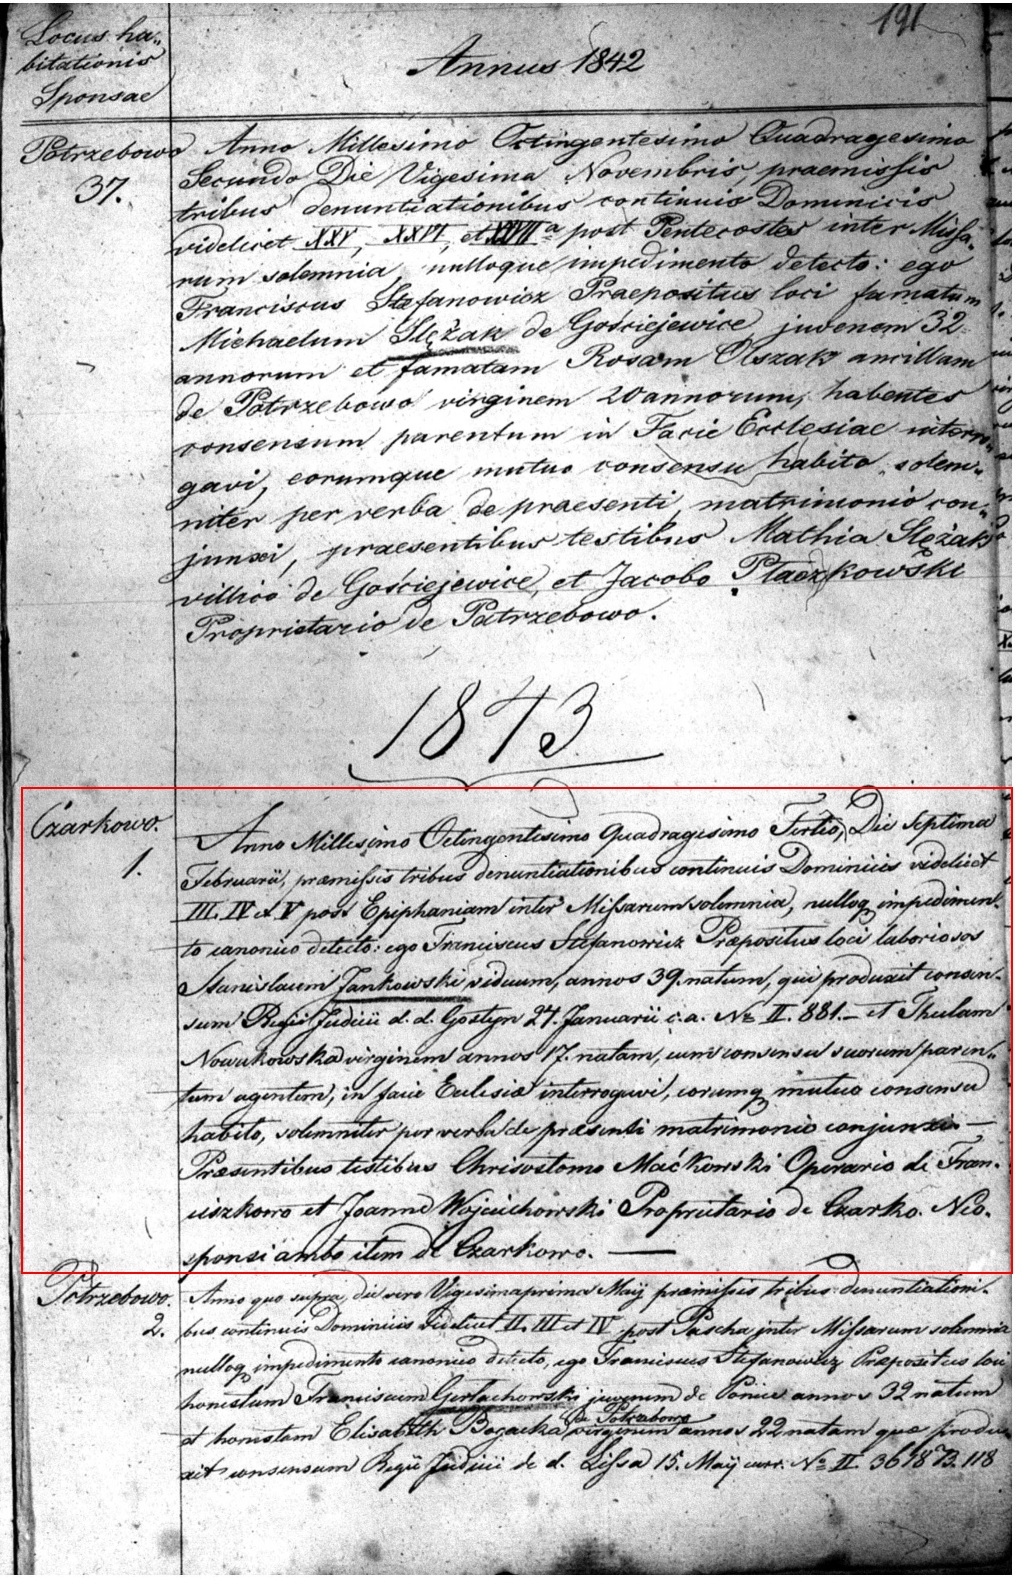 191
Locus ha„
bitationis
Sponsae
Annus 1842
Potrzebowo
37.
Anno Millesimo Octingentesimo Quadragesimo
Secundo Die Vigesima Novembris, praemissis
tribus denuntiationibus continuis Dominicis
videlicet XXV, XXVI, et XXVII a post Pentecostes inter Missa„
rum solemnia, nulloque impedimento detecto: ego
Franciscus Stefanowicz Praepositus loci famatum
Michaelum Slężak de Gościejewice juvenem 32
annorum et famatam Rosam Olszak ancillam
de Potrzebowo virginem 20 annorum, habentes
consensum parentum in Facie Ecclesiae interro„
gavi, eorumque mutuo consensu habito, solem„
niter per verba de praesenti matrimonio con„
junxi, praesentibus testibus Mathia Slężak
villico de Gościejewice, et Jacobo Placzkowski
Proprietario de Potrzebowo.
1843
Czarkowo.
1.
Anno Millesimo Octingentesimo Quadragesimo Tertio, Die Septima
Februarii, præmissis tribus denuntiationibus continuis Dominicis videlicet
III. IV et V post Epiphaniam inter Missarum solemnia, nulloq impedimen„
to canonico detecto: ego Franciscus Stefanowicz Præpositus loci laboriosos
Stanislaum Jankowski viduum, annos 39. natum, qui produxit consen„
sum Regii Judicii d. d. Gostyn 27. Januarii c. a. No II. 881. – et Theclam
Nowakowska virginem annos 17. natam, cum consensu suorum paren„
tum agentem, in facie Ecclesiæ interrogavi, eorumq mutuo consensu
habito, solemniter per verba de præsenti matrimonio conjunxi –
Præsentibus testibus Chrisostomo Maćkowski Operario de Fran„
ciszkowo et Joanne Wojciechowski Proprietario de Czarko. Neo„
sponsi ambo item de Czarkowo. —
Potrzebowo.
2.
Anno quo supra, die vero Vigesima prima Maij præmissis tribus denuntiationi„
bus continuis Dominicis videlicet II. III et IV post Pascha inter Missarum solemnia
nulloq impedimento canonico detecto, ego Franciscus Stefanowicz Præpositus loci
honestum Franciscum Gerlachowski juvenum de Ponice annos 32 natum
de Potrzebowo
et honestam Elisabeth Bozacka virginem annos 22 natam quæ produ„
xit consensum Regii Judicii de d. Lissa 15. Maij curr. No II. 3678 73. 118